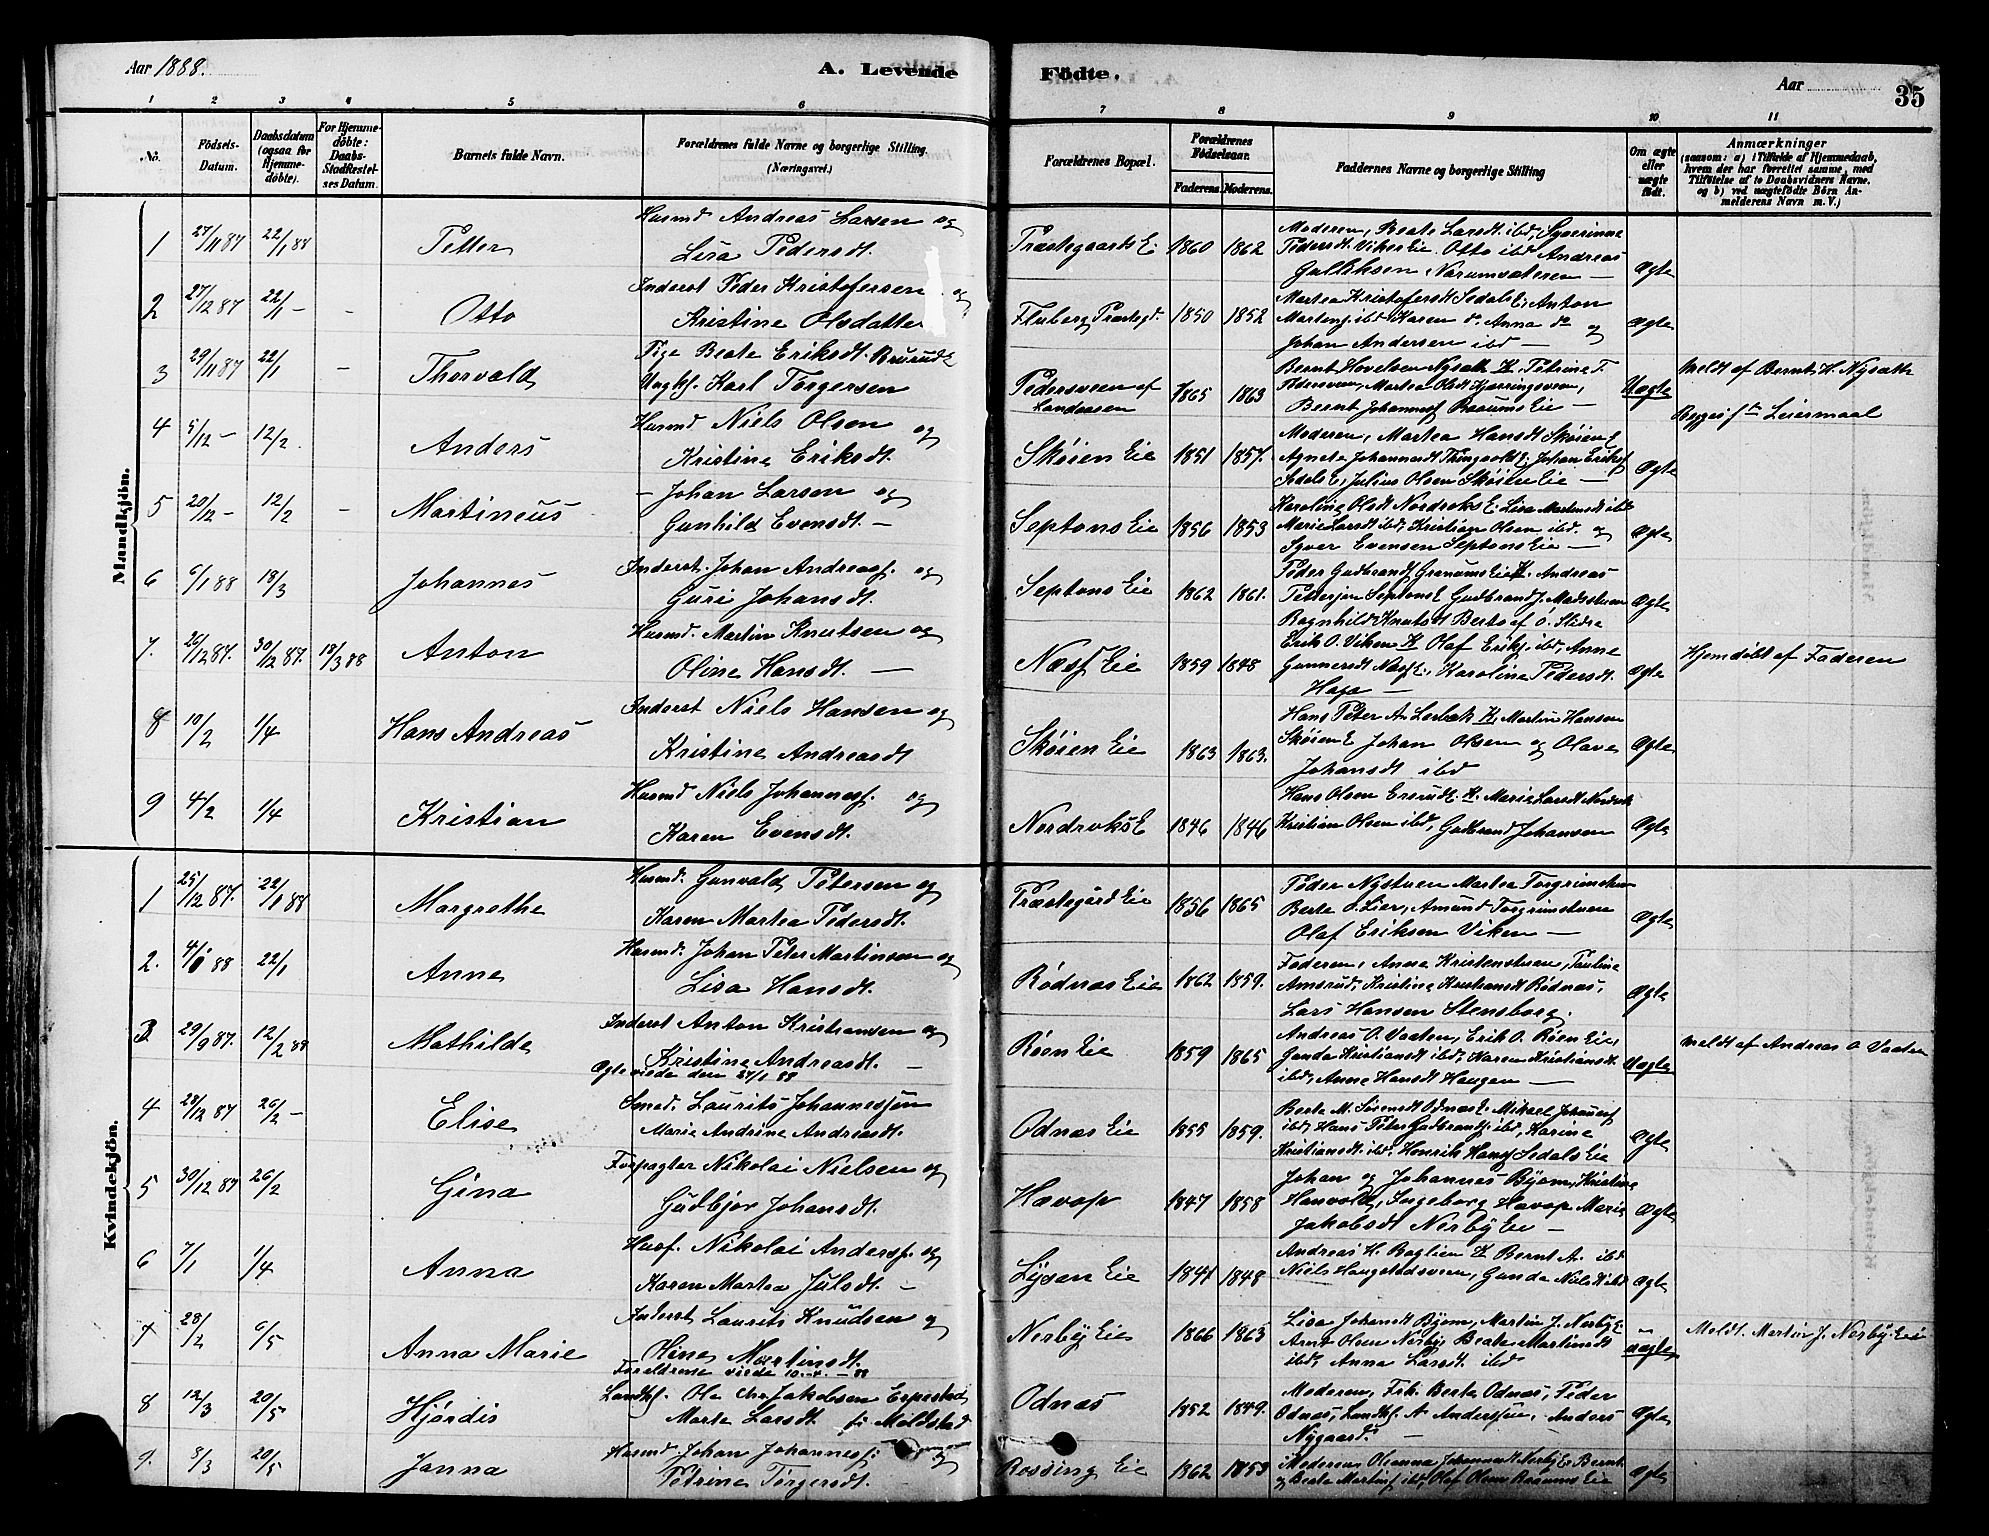 Aar 1888.
A. Levende Födte.
Aar
35
1 2 3 4 5 6 7 8 9 10 11
No.
Födsels-Datum.
Daabsdatum (ogsaa for Hjemme-döbte).
For Hjemme-döbte: Daabs-Stadfæstel-ses Datum.
Barnets fulde Navn.
Forældrenes fulde Navne og borgerlige Stilling. (Næringsvei.)
Forældrenes Bopæl.
Forældrenes Födselsaar.
Faderens. Moderens.
Faddernes Navne og borgerlige Stilling
Om ægte eller uægte födt.
Anmærkninger
(saasom: a) i Tilfælde af Hjemmedaab, hvem der har forrettet samme, med Tilföielse af to Daabsvidners Navne, og b) ved uægtefödte Börn An-melderens Navn m. V.)
Mandkjön.
1 27/11 87 22/1 88 Petter
Husmd Andreas Larsen og
Lisa Pedersdt.
Præstegaards Ei 1860 1862
Moderen, Beate Larsdt. ibd, Syverinne
Pedersdt. Viken Eie Otto ibd Andreas
Gulliksen, Narumsæteren —
Ægte
2 27/12 87 22/1 – - Otto
Inderst Peder Kristofersen og
Kristine Olsdatter
Fluberg Præstegd. 1850 1852
Martea Kristofersdt Sedals E, Anton
Martens. ibd Karen do Anna do og
Johan Andersen ibd —
Ægte
3 29/11 87 22/1 - Thorvald
Pige Beate Eriksdt. Brurud E
Ungkf. Karl Torgersen
Pedersveen af Landaasen 1865 1863
Bernt Hovelsen Nysæth K. Petrine T.
Pedersveen, Martea Olsdt Kjærringsveen,
Bernt Johannesf Raaums Eie —
Uægte
Meldt af Bernt H. Nysæth
Begges 1ste Leiermaal
4 5/12 – 12/2 Anders
Husmd Niels Olsen og
Kristine Eriksdt.
Skøien Eie 1851 1857.
Moderen, Martea Hansdt Skøien E
Agnete Johannesdt Thingvold E, Johan Eriksf
Sedals E, Julius Olsen Skøien Eie —
Ægte
5 20/12 – 12/2 - Martineus
– Johan Larsen og
Gunhild Evensdt. —
Septons Eie 1856 1853
Karoline Olsdt Nordroks E. Lisa Martensdt ibd
Marie Larsdt ibd, Kristian Olsen ibd. og
Syver Evensen Septons Eie —
Ægte
6 6/1 88 18/3 Johannes
Inderst. Johan Andreasf. og
Guri Johansdt.
Septons Eie 1862 1861.
Peder Gudbrandf Granums Eie K. Andreas
Pettersen Septons E Gudbrand J. Madsstuen
Ragnhild Knutsdt Berto af O. Slidre
Ægte
7. 26/12 87. 30/12 87. 18/3 88 Anton
Husmd. Martin Knutsen og
Oline Hansdt. —
Næsf Eie 1859 1848
Erik O. Viken K Olaf Eriks. ibd, Anne
Gunnersdt Næsf E., Karoline Pedersdt.
Haga —
Ægte
Hjemdöbt af Faderen
8 10/2 1/4 Hans Andreas
Inderst Niels Hansen og
Kristine Andreasdt
Skøien Eie 1863 1863.
Hans Peter A. Lerbæk K. Martin Hansen
Skøien E Johan Olsen og Olave
Johansdt ibd
Ægte
9 4/2 1/4 Kristian
Husmd Niels Johannesf. og
Karen Evensdt.
Nordroks E 1846 1846
Hans Olsen Ersrud E. K. Marie Larsdt Nordrok
Kristian Olsen ibd, Gudbrand Johansen
Ægte
Kvindekjön.
1 25/12 87. 22/1 88 Margrethe
Husmd. Gunvald Petersen og
Karen Martea Pedersdt.
Præstegård Eie 1856 1865
Peder Nystuen Martea Torgrimstuen
Berte O. Lier, Amund Torgrimstuen
Olaf Eriksen Viken —
Ægte
2. 4/1 88 22/1 Anne
Husmd. Johan Peter Martinsen og
Lisa Hansdt.
Rødnæs Eie 1862 1859.
Faderen, Anne Kristenstuen, Pauline
Amsrud, Kristine Knuthansdt Rødnæs,
Lars Hansen Stensborg.
Ægte
3 29/9 87. 12/2 88 Mathilde
Inderst Anton Kristiansen og
Kristine Andreasdt. —
Ægteviede den 27/1 88
Røen Eie 1859 1865
Andreas O. Vaaten, Erik O. Røen Eie,
Gunda Kristiansdt ibd, Karen Kristiansdt
ibd, Anne Hansdt Haugen —
Uægte
Meldt af Andreas O Vaaten
4 28/12 87 26/2 – Elise
Smed. Laurits Johannessen
Marie Andrine Andreasdt.
Odnæs Eie 1855 1859.
Berte M. Sørensdt Odnæs E. Mikael Johannesf
ibd, Hans Peter Gudbrandf. ibd, Karine
Kristiansdt. ibd. Henrik Hansf Sedals Eie
Ægte
5 30/12 87 26/2 Gina
Forpagter Nikolai Nielsen og
Gudbjør Johansdt.
Hævop 1847 1858
Johan og Johannes Bjørn, Kristine
Hanvold, Ingeborg Hævop Marie
Jakobsdt Nerby Eie —
Ægte
6 7/1 1/4 Anna
Husf. Nikolai Andersf. og
Karen Martea Julsdt. —
Lysen Eie 1841 1848
Andreas H. Baglien K Bernt A. ibd
Niels Haugstadsveen, Gunda Nielsd. ibd
Ægte
7 28/2 6/5 Anna Marie
Inderst Laurits Knudsen og
Oline Martinsdt.
Forældrene viede 10-4-88
Nerby Eie 1866 1865
Lisa Johansdt Bjørn, Martin J. Nerby E
Arnt Olsen Nerby Beate Martinsdt
ibd, Anna Larsdt. ibd
uægte
Meldt. Martin J. Nerby Eie
8 12/3 20/5 Hjördis
Landhf. Ole Chr Jakobsen Erpestad
Marte Larsdt
Odnæs 1852 1849.
Moderen, Frk. Berte Odnæs, Peder
Odnæs, Landhf. A Anderssen, Anders
Nygaard.
Ægte
9. 8/3 20/5 Janna
Husmd. Johan Johannesf. og
Petrine Torgersdt.
Rossing Eie 1862 1853
Moderen Oleanna Johannesdt Nerby E Bernt
og Beate Martinsf ibd, Olaf Olsen Raaums Eie
Ægte